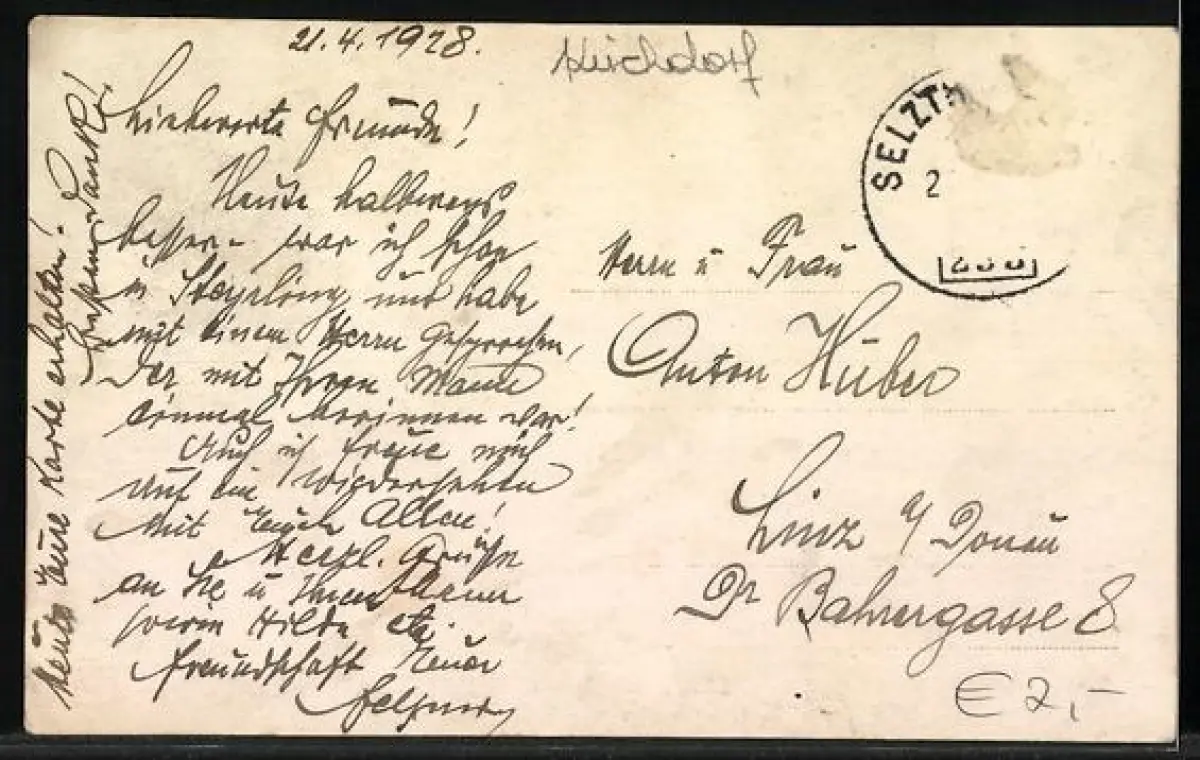 21.4.1928.
Kirchdorf
Liebwerte Freunde!
Heute halbwegs
besser - war ich schon
in Steyrling und habe
mit einem Herrn gesprochen,
der mit Ihrem Mann
einmal war!
Auch ich freue mich
auf ein Wiedersehen
mit Euch Allen!
Herzl. Grüße
an Sie u Ihren Mann
sowie Hilde etc.
Freundschaft Euer
Heute Eure Karte erhalten!
Besten Dank!
SELZTH
2
Herrn u Frau
Anton Huber
Linz a/ Donau
Dr Bahrergasse 8
€ 7,-